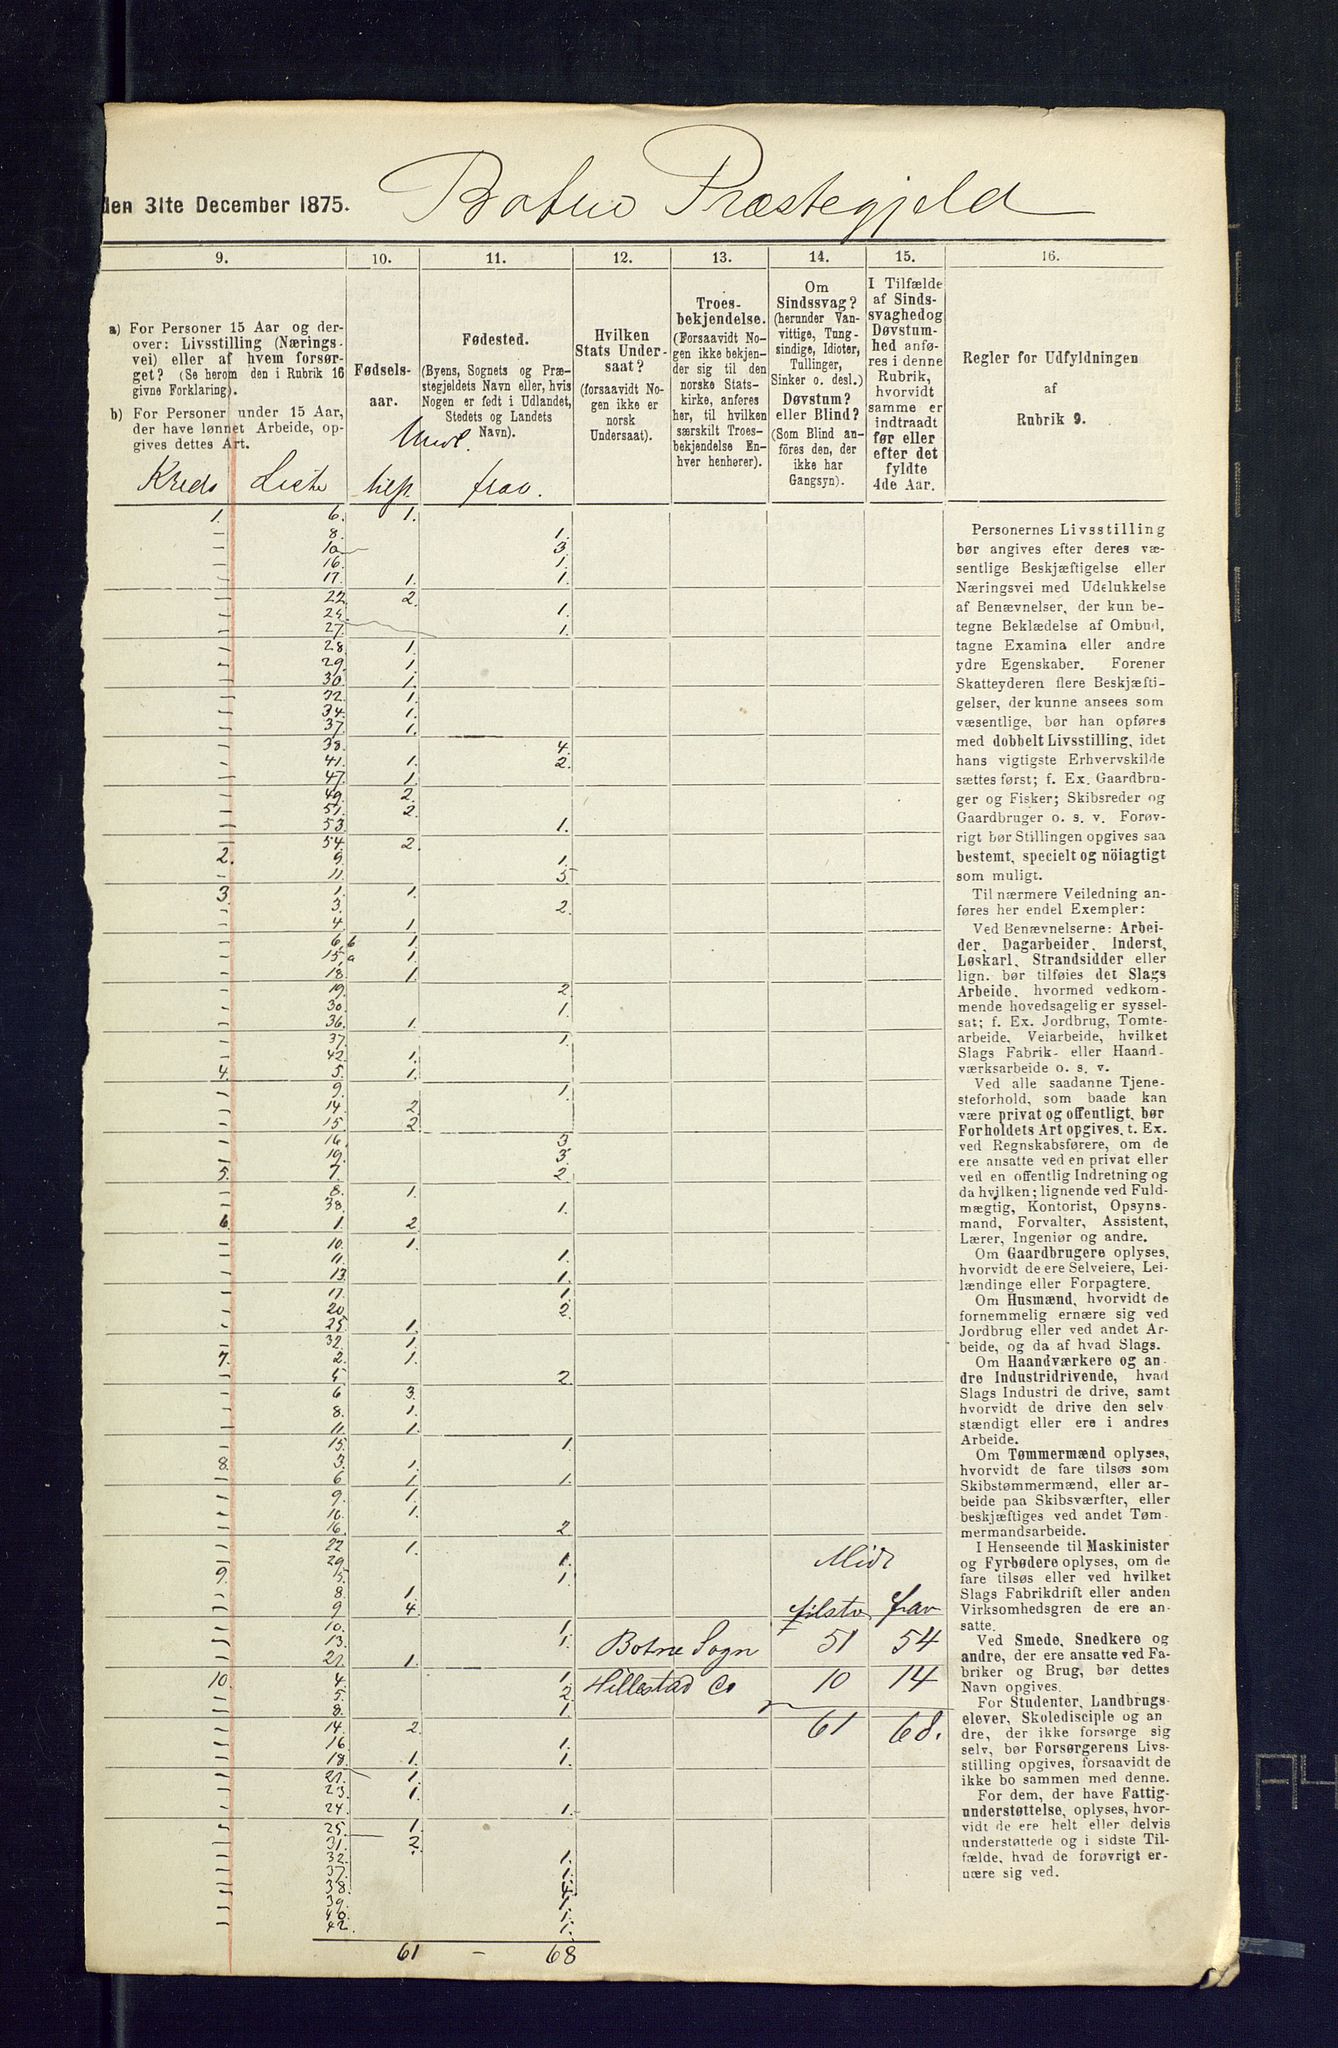 den 31te December 1875. Botne Præstegjeld
9. 10. 11. 12. 13. 14. 15. 16.
a) For Personer 15 Aar og der-
over: Livsstilling (Nærings-
vei) eller af hvem forsør-
get? (Se herom den i Rubrik 16
givne Forklaring).
b) For Personer under 15 Aar,
der have lønnet Arbeide, op-
gives dettes Art.
Fødsels-
aar.
Fødested.
(Byens, Sognets og Præ-
stegjeldets Navn eller, hvis
Nogen er født i Udlandet,
Stedets og Landets
Navn).
Hvilken
Stats Under-
saat?
(forsaavidt No-
gen ikke er
norsk
Undersaat).
Troes-
bekjendelse.
(Forsaavidt No-
gen ikke bekjen-
der sig til den
norske Stats-
kirke, anføres
her, til hvilken
særskilt Troes-
bekjendelse En-
hver henhører).
Om
Sindssvag?
(herunder Van-
vittige, Tung-
sindige, Idioter,
Tullinger,
Sinker o. desl.)
Døvstum?
eller Blind?
(Som Blind an-
føres den, der
ikke har
Gangsyn).
I Tilfælde
af Sinds-
svaghed og
Døvstum-
hed anfø-
res i denne
Rubrik,
hvorvidt
samme er
indtraadt
før eller
efter det
fyldte
4de Aar.
Regler for Udfyldningen
af
Rubrik 9.
Kreds Liste tilst. frav.
1. 6. 1.
– 8. 1.
– 10 3.
– 16. 1.
– 17. 1. 1.
– 22. 2.
– 25. 1.
– 27. 1.
– 28. 1.
– 29. 1.
– 30. 1.
– 32. 1.
– 34. 1.
– 37. 1.
– 38. 4.
– 41. 1. 2.
– 47. 1.
– 49. 2.
– 51. 2.
– 53. 1.
– 54. 2.
2. 9. 1.
– 11. 5
3. 1. 1.
– 3. 2.
– 4. 1.
– 6. b 1.
– 15. a 1.
– 18. 1.
– 19. 2
– 30. 1.
– 36. 1.
– 37. 1.
– 42. 1.
4. 5. 1.
– 9. 1.
– 14. 2.
– 15. 2.
– 16. 3
– 19. 3.
5. 7. 2.
– 8. 1.
– 38. 1.
6. 1. 2.
– 10. 1.
– 11. 1.
– 13. 1.
– 17. 1.
– 20. 2.
– 25. 1.
– 32. 1.
7. 2. 1.
– 5 2.
– 6 3.
– 8. 1.
– 11. 1.
– 15. 1.
8. 3. 1.
– 6 1. 1.
– 9. 1.
– 10. 1.
– 16. 2
– 22 1.
– 29. 1.
9. 5. 1.
– 8. 1.
– 9 4.
– 10. 1.
– 13. 1.
– 21. 1.
10. 4. 1.
– 5. 2.
– 8. 1.
– 14. 2.
– 16 1.
– 18. 1. 1.
– 21. 1.
– 23. 1.
– 24. 1.
– 25. 1.
– 31. 2.
– 32. 1.
– 37. 1.
– 38. 4.
– 39. 1.
– 40. 1.
– 42. 1.
61 – 68
Midt
tilstv frav
Botne Sogn 51 54
Hillestad Do 10 14
61 68.
Personernes Livsstilling
bør angives efter deres væ-
sentlige Beskjæftigelse eller
Næringsvei med Udelukkelse
af Benævnelser, der kun be-
tegne Beklædelse af Ombud,
tagne Examina eller andre
ydre Egenskaber. Forener
Skatteyderen flere Beskjæfti-
gelser, der kunne ansees som
væsentlige, bør han opføres
med dobbelt Livsstilling, idet
hans vigtigste Erhvervskilde
sættes først; f. Ex. Gaardbru-
ger og Fisker; Skibsreder og
Gaardbruger o. s. v. Forøv-
rigt bør Stillingen opgives saa
bestemt, specielt og nöiagtigt
som muligt.
Til nærmere Veiledning an-
føres her endel Exempler:
Ved Benævnelserne: Arbei-
der, Dagarbeider, Inderst,
Løskarl, Strandsidder eller
lign. bør tilføies det Slags
Arbeide, hvormed vedkom-
mende hovedsagelig er syssel-
sat; f. Ex. Jordbrug, Tomte-
arbeide, Veiarbeide, hvilket
Slags Fabrik- eller Haand-
værksarbeide o. s. v.
Ved alle saadanne Tjene-
steforhold, som baade kan
være privat og offentligt, bør
Forholdets Art opgives, t. Ex.
ved Regnskabsførere, om de
ere ansatte ved en privat eller
ved en offentlig Indretning og
da hvilken; lignende ved Fuld-
mægtig, Kontorist, Opsyns-
mand, Forvalter, Assistent,
Lærer, Ingeniør og andre.
Om Gaardbrugere oplyses,
hvorvidt de ere Selveiere, Lei-
lændinge eller Forpagtere.
Om Husmænd, hvorvidt de
fornemmelig ernære sig ved
Jordbrug eller ved andet Ar-
beide, og da af hvad Slags.
Om Haandværkere og an-
dre Industridrivende, hvad
Slags Industri de drive, samt
hvorvidt de drive den selv-
stændigt eller ere i andres
Arbeide.
Om Tømmermænd oplyses,
hvorvidt de fare tilsøs som
Skibstømmermænd, eller ar-
beide paa Skibsværfter, eller
beskjæftiges ved andet Tøm-
mermandsarbeide.
I Henseende til Maskinister
og Fyrbødere oplyses, om de
fare tilsøs eller ved hvilket
Slags Fabrikdrift eller anden
Virksomhedsgren de ere an-
satte.
Ved Smede, Snedkere og
andre, der ere ansatte ved Fa-
briker og Brug, bør dettes
Navn opgives.
For Studenter, Landbrugs-
elever, Skoledisciple og an-
dre, der ikke forsørge sig
selv, bør Forsørgerens Livs-
stilling opgives, forsaavidt de
ikke bo sammen med denne.
For dem, der have Fattig-
understøttelse, oplyses, hvor-
vidt de ere helt eller delvis
understøttede og i sidste Til-
fælde, hvad de forøvrigt er-
nære sig ved.
A4